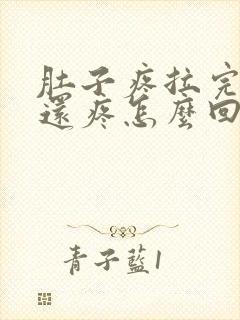 肚子疼拉完
還疼怎麼回
青子藍1